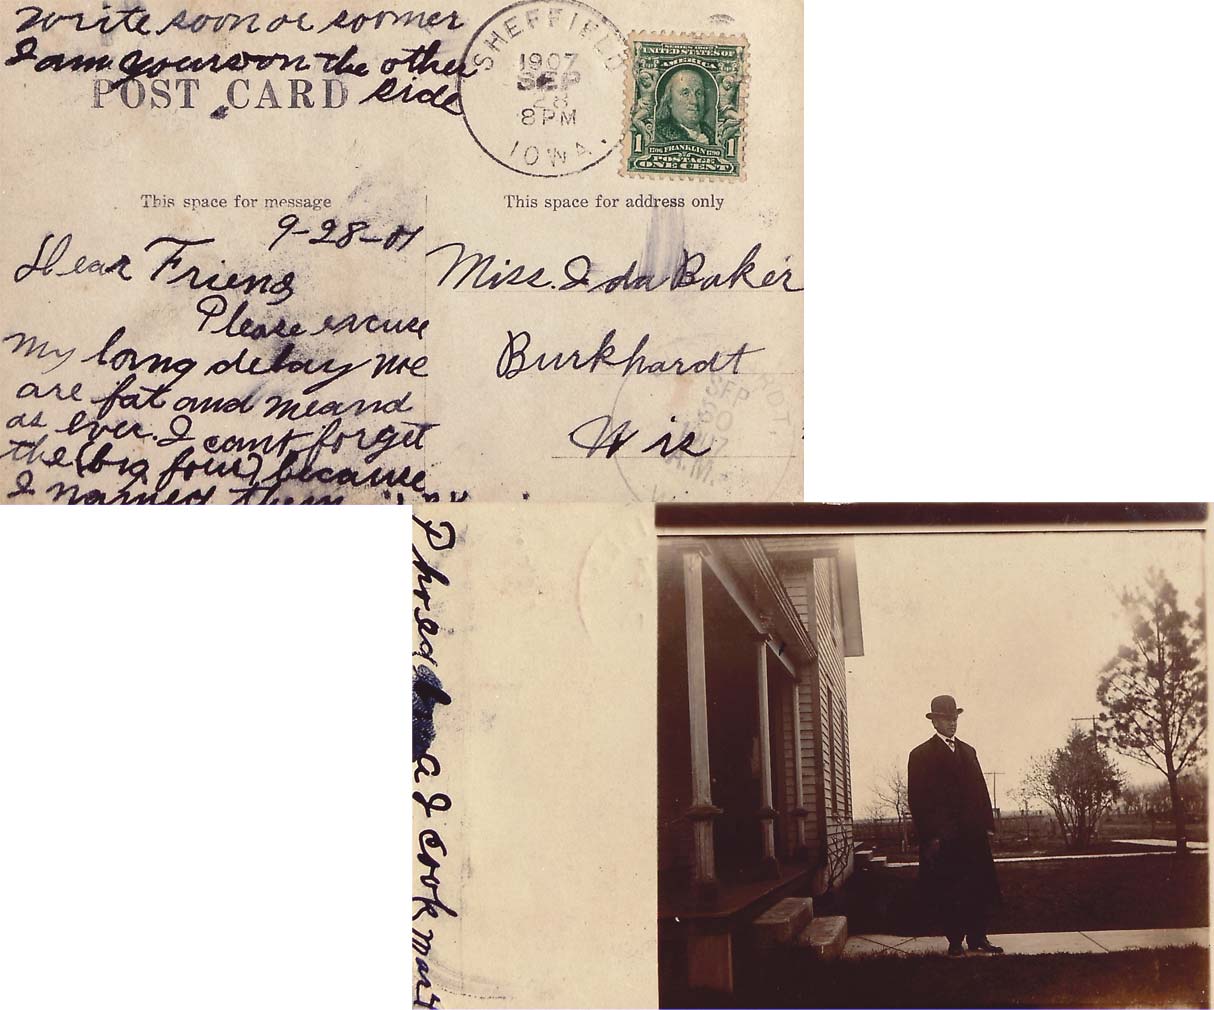 write soon or soomer
I am yours on the other
side
POST CARD
SHEFFIELD
1907
SEP
28
8 PM
IOWA.
SERIES 1902
UNITED STATES OF
AMERICA
1706 FRANKLIN 1790
1 POSTAGE 1
ONE CENT
This space for message
This space for address only
9-28-07
Dear Friend
Please excuse
my long delay we
are fat and
as ever. I cant forget
the (big four) because
I named them
Miss. Ida Baker
Burkhardt
Wis
SEP
30
1907
A.M.
Phred a J Cook